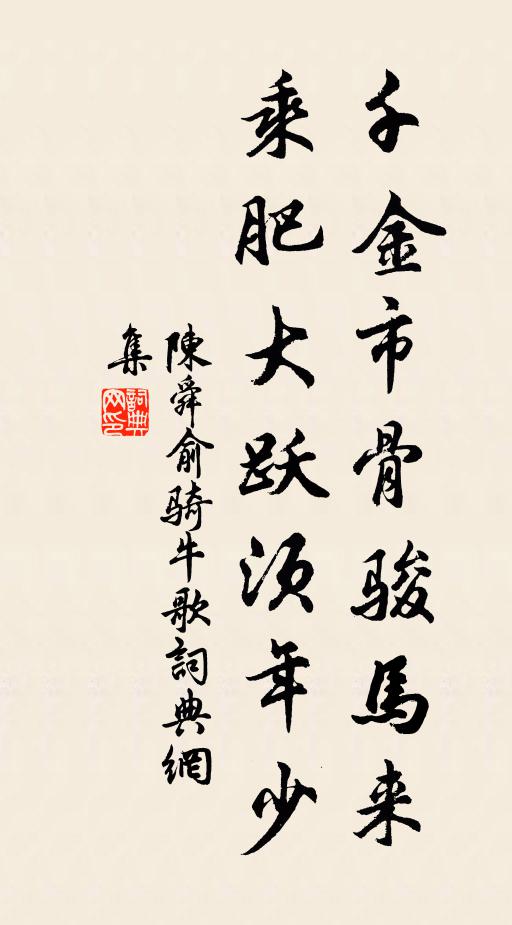 千金市骨骏馬来
乘肥大跃须年少
陳舜俞骑牛歌詞典網
集
詞典
网印